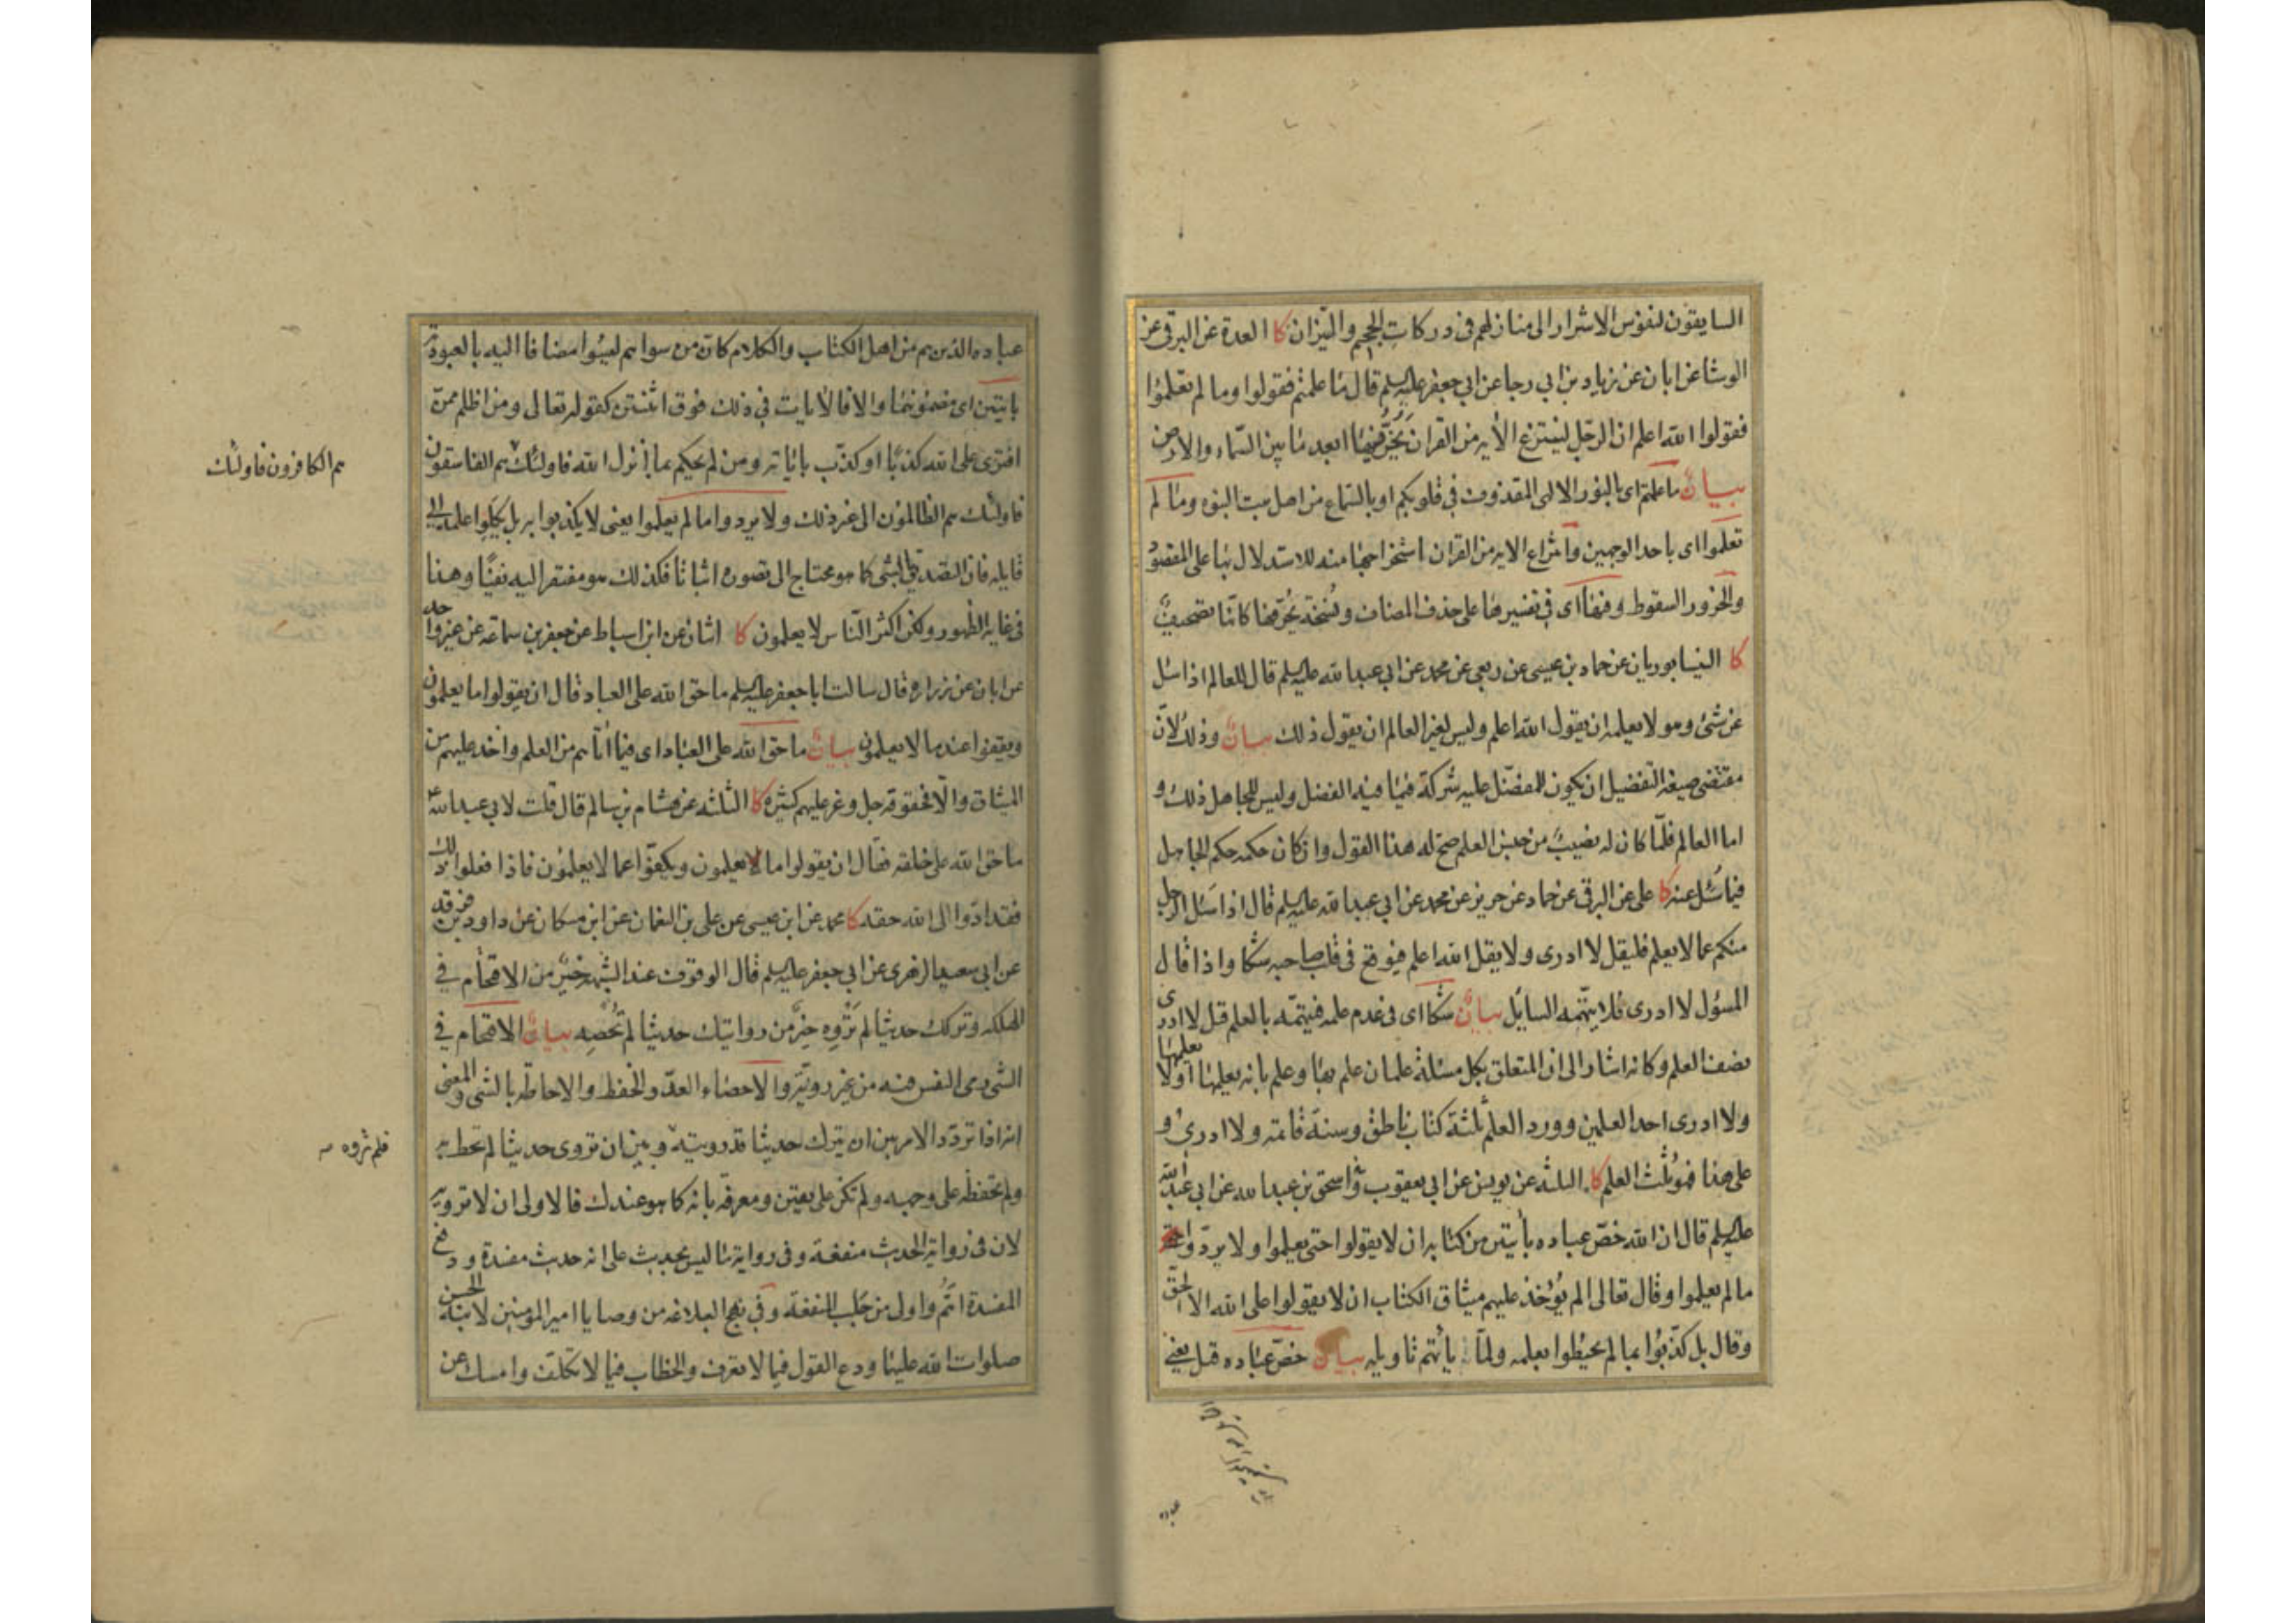 السايقون لنفوس الاشرار الى منازلهم فى دركات الجحيم والنيران كا العدة عن البرقى عن
الوشا عن ابان عن زياد بن ابي رجا عن ابي جعفر عليه السلم قال ما علمتم فقولوا وما لم تعلموا
فقولوا الله اعلم ان الرجل لينتزع الأية من القران يَخِرُّ فيها ابعد ما بين السماء والارض
بيان ما علمتم اى بالنور الالهى المقذوف في قلوبكم او بالسماع من اهل بيت النبوه وما لم
تعلموا اى باحد الوجهين وانتزاع الاية من القران استخراجها منه للاستدلال بها على المقصود
والخرور السقوط وفيها اى في تفسيرها على حذف المضاف وفى نسخة يحرّفها كانّها تصحيف
كا النيسابوريان عن حماد بن عيسى عن ربعى عن محمد عن ابي عبد الله عليه السلم قال للعالم اذا سئل
عن شئ وهو لا يعلمه ان يقول الله اعلم وليس لغير العالم ان يقول ذلك بيان وذلك لانّ
مقتضى صيغة التفضيل ان يكون للمفضّل عليه شركة فيما فيه الفضل وليس للجاهل ذلك و
اما العالم فلمّا كان له نصيبٌ من جنس العلم صح له هذا القول وان كان حكمه حكم الجاهل
فيما سُئل عنه كا على عن البرقى عن حماد عن حريز عن محمد عن ابي عبد الله عليه السلم قال اذا سئل الرجل
منكم عما لا يعلم فليقل لا ادرى ولا يقل الله اعلم فيوقع فى قلب صاحبه شكا واذا قال
المسؤل لا ادرى فلا يتّهمه السايل بيان شكا اى فى عدم علمه فيتهمّه بالعلم قيل لا ادرى
نصف العلم وكانه اشار الى ان المتعلق بكل مسئلة علمان علم بها وعلم بانه يعلمها او لا يعلمها
ولا ادرى احد العلمين وورد العلم ثلثة كتاب ناطق وسنة قائمه ولا ادرى و
على هذا فهو ثُلث العلم كا الثلثه عن يونس عن ابي يعقوب اسحق بن عبد الله عن ابي عبد الله
عليه السلم قال ان الله خصّ عباده بأيتين من كتابه ان لا يقولوا حتى يعلموا ولا يردّوا
ما لم يعلموا وقال تعالى الم يُؤخذ عليهم ميثاق الكتاب ان لا يقولوا على الله الا الحق
وقال بل كذّبُوا بما لم يحيطوا بعلمه ولمّا يأتهم تاويله بيان خصّ عباده قيل يعنى
عباده الذين هم من اهل الكتاب والكلام كان من سواهم ليسُوا مضافا اليه بالعبودية
بايتين اى مضمونهما والا فالأيات في ذلك فوق اثنتين كقوله تعالى ومن اظلم ممن
افترى على الله كذبًا او كذّب باياته ومن لم يحكم بما انزل الله فاولئك هم الفاسقون
هم الكافرون فاولئك
فاولئك هم الظالمون الى غير ذلك ولا يردوا ما لم يعلموا يعنى لا يكذبوا به بل يكلوا علمه الى
قايله فان التصديق بالشئ كما هو محتاج الى تصوره اثباتا فكذلك هو مفتقر اليه نفيًا وهذا
فى غاية الظهور ولكن اكثر الناس لا يعلمون كا اثنان عن ابن اسباط عن جعفر بن سماعه عن غير واحد
عن ابان عن زراره قال سالت ابا جعفر عليه السلم ما حق الله على العباد قال ان يقولوا ما يعلمون
ويقفوا عند ما لا يعلمون بيان ما حق الله على العباد اى فيما اتاهم من العلم واخذ عليهم من
الميثاق والّا فحقوقه جل وعز عليهم كثيره كا الثلثه عن هشام بن سالم قال قلت لابي عبد الله ع
ما حق الله على خلقه فقال ان يقولوا ما يعلمون ويكفّوا عما لا يعلمون فاذا فعلوا ذلك
فقد ادّوا الى الله حقه كا محمد عن ابن عيسى عن على بن النعمان عن ابن مسكان عن داود بن فرقد
عن ابي سعيد الزهرى عن ابي جعفر عليه السلم قال الوقوف عند الشبهة خيرٌ من الاقتحام في
الهلكه وتركك حديثا لم تَرْوِه خيرٌ من روايتك حديثا لم تُحْصِه بيان الاقتحام في
الشئ رمى النفس فيه من غير رويّة والاحصاء العدّ والحفظ والاحاطة بالشئ والمعنى
انه اذا تردّد الامر بين ان تترك حديثا قد رويته وبين ان تروى حديثا لم تحط به
فلم تروه
ولم تحفظه على وجهه ولم تكن على يقين ومعرفة بانه كما هو عندك فالاولى ان لا ترويه
لان فى رواية الحديث منفعة وفى رواية ما ليس بحديث على انه حديث مفسدة ودفع
المفسدة اتمّ واولى من جلب المنفعة وفي نهج البلاغه من وصايا امير المومنين لابنه الحسن
صلوات الله عليهما ودع القول فيما لا تعرف والخطاب فيما لا تكلّف وامسك عن